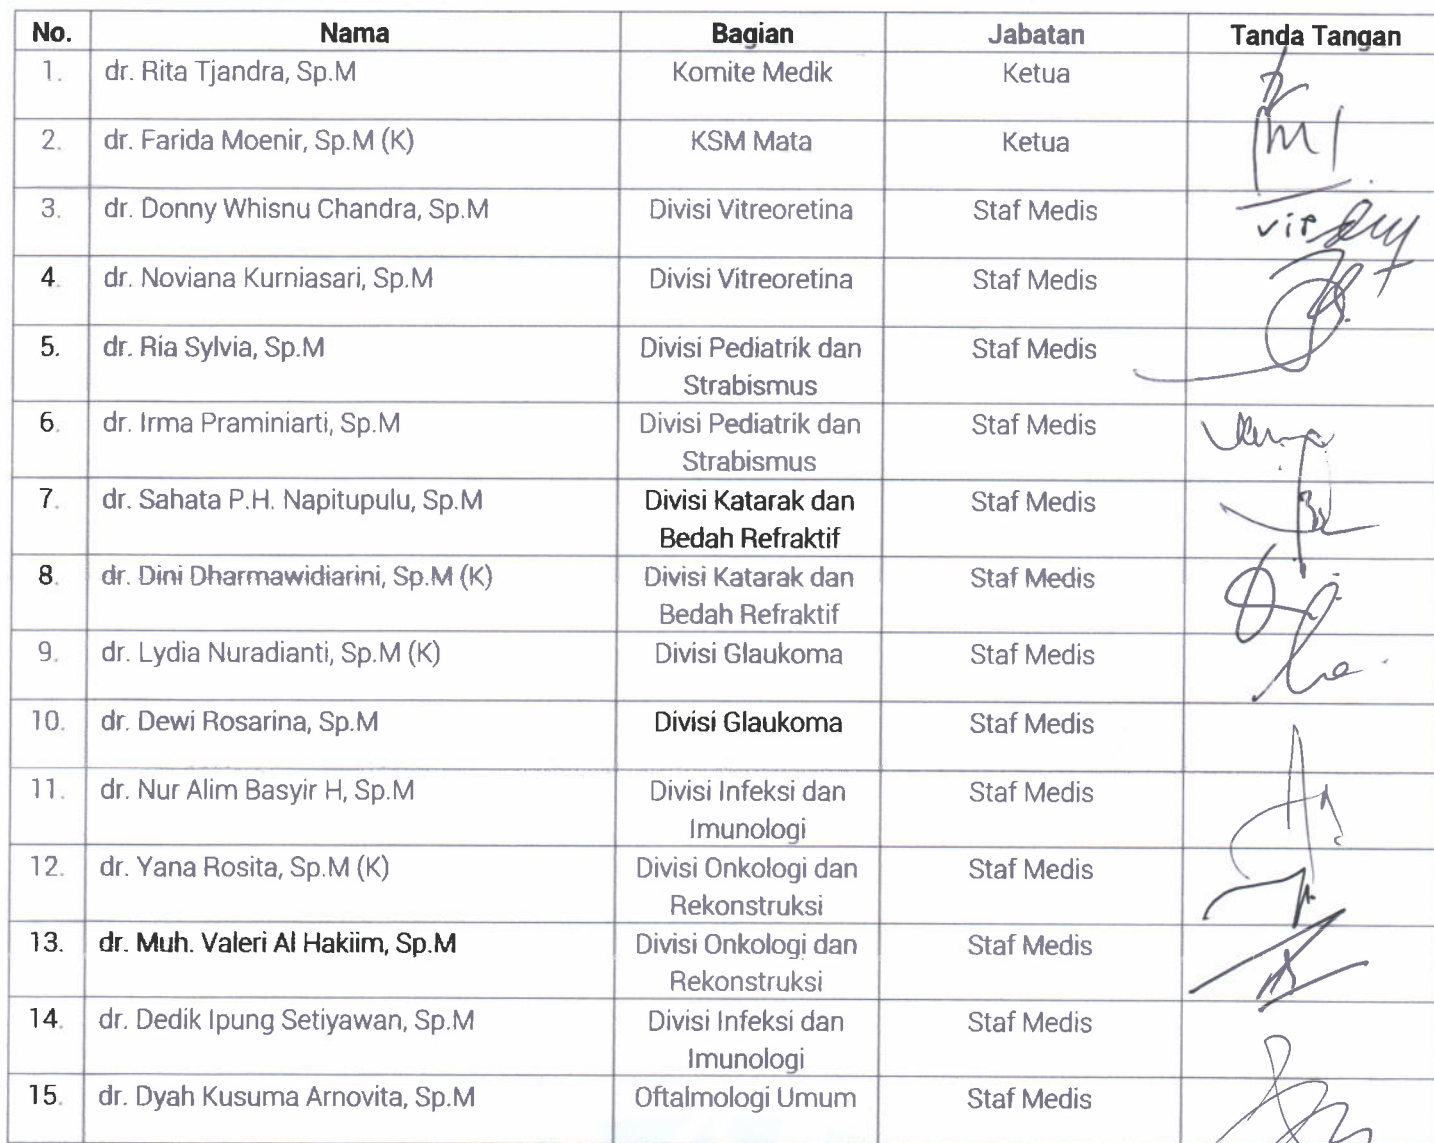 No. Nama Bagian Jabatan Tanda Tangan
1. dr. Rita Tjandra, Sp.M Komite Medik Ketua
2. dr. Farida Moenir, Sp.M (K) KSM Mata Ketua
3. dr. Donny Whisnu Chandra, Sp.M Divisi Vitreoretina Staf Medis
4. dr. Noviana Kurniasari, Sp.M Divisi Vitreoretina Staf Medis
5. dr. Ria Sylvia, Sp.M Divisi Pediatrik dan Staf Medis
Strabismus
6. dr. Irma Praminiarti, Sp.M Divisi Pediatrik dan Staf Medis
Strabismus
7. dr. Sahata P.H. Napitupulu, Sp.M Divisi Katarak dan Staf Medis
Bedah Refraktif
8. dr. Dini Dharmawidiarini, Sp.M (K) Divisi Katarak dan Staf Medis
Bedah Refraktif
9. dr. Lydia Nuradianti, Sp.M (K) Divisi Glaukoma Staf Medis
10. dr. Dewi Rosarina, Sp.M Divisi Glaukoma Staf Medis
11. dr. Nur Alim Basyir H, Sp.M Divisi Infeksi dan Staf Medis
Imunologi
12. dr. Yana Rosita, Sp.M (K) Divisi Onkologi dan Staf Medis
Rekonstruksi
13. dr. Muh. Valeri Al Hakiim, Sp.M Divisi Onkologi dan Staf Medis
Rekonstruksi
14. dr. Dedik Ipung Setiyawan, Sp.M Divisi Infeksi dan Staf Medis
Imunologi
15. dr. Dyah Kusuma Arnovita, Sp.M Oftalmologi Umum Staf Medis